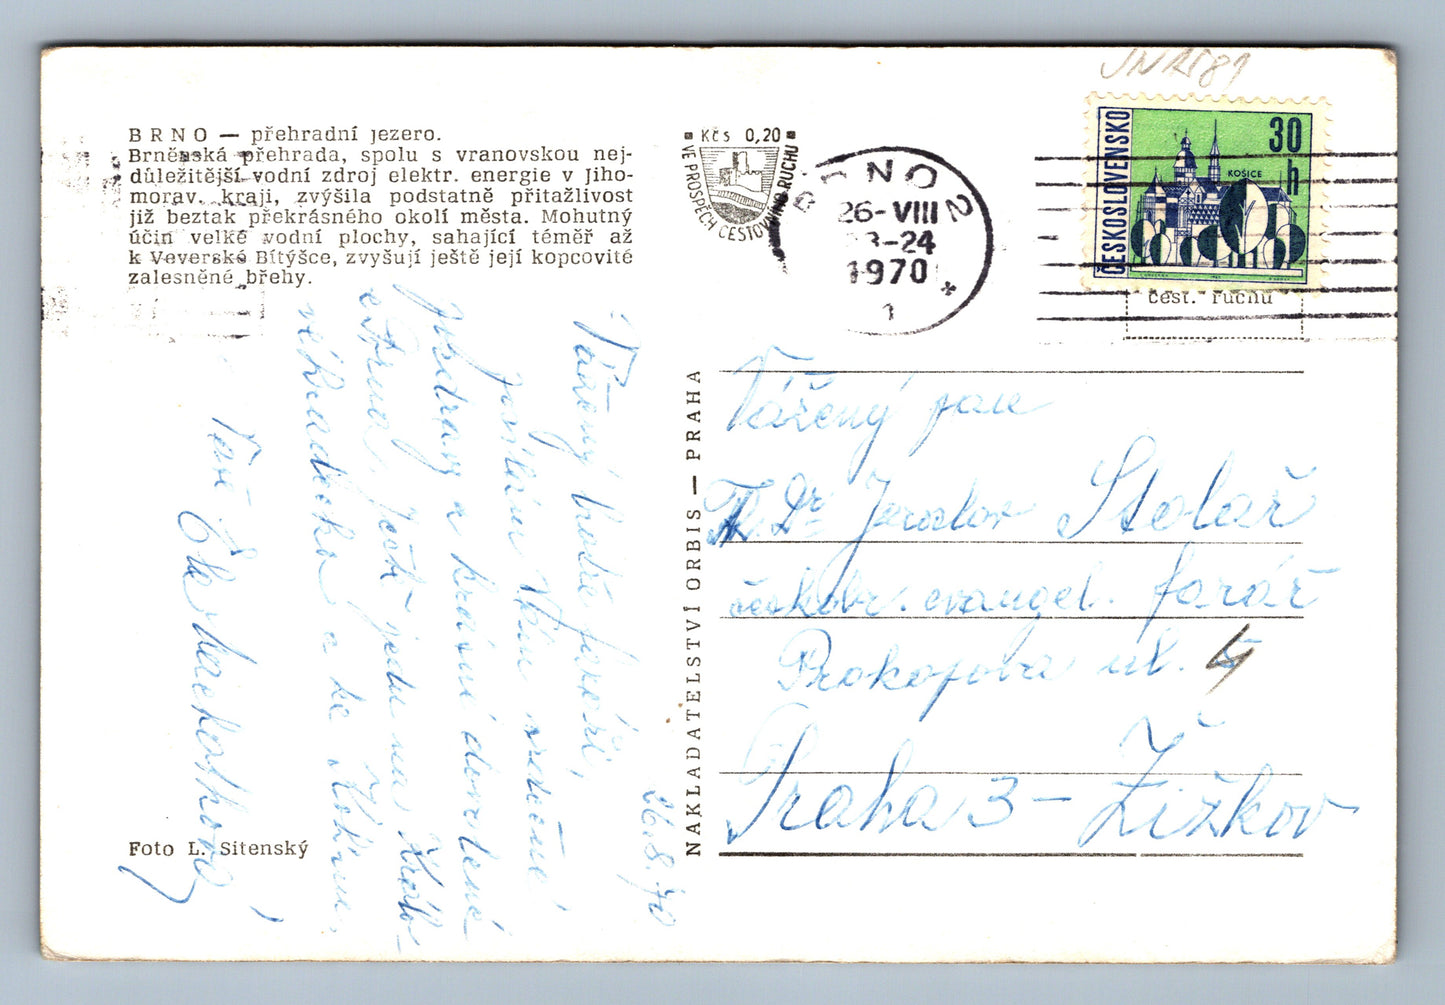 BRNO — přehradní jezero.
Brněnská přehrada, spolu s vranovskou nej-
důležitější vodní zdroj elektr. energie v Jiho-
morav. kraji, zvýšila podstatně přitažlivost
již beztak překrásného okolí města. Mohutný
účin velké vodní plochy, sahající téměř až
k Veverské Bítýšce, zvyšují ještě její kopcovité
zalesněné břehy.
Kčs 0,20
VE PROSPĚCH CESTOVNÍHO RUCHU
BRNO 2
26-VIII
23-24
1970
*
1
ČESKOSLOVENSKO
30
h
KOŠICE
čest. ruchu
NAKLADATELSTVÍ ORBIS — PRAHA
Vážený pan
Th. Dr Jaroslav Stolař
českobr. evangel. farář
Prokopova ul. 4
Praha 3 – Žižkov
26.8.70
Vážený bratře faráři,
posílám Vám srdečné
pozdravy z krásné dovolené
z Brna. Ještě jedu na Králo-
véhradecko a ke Kolínu.
Vaše
Foto L. Sitenský